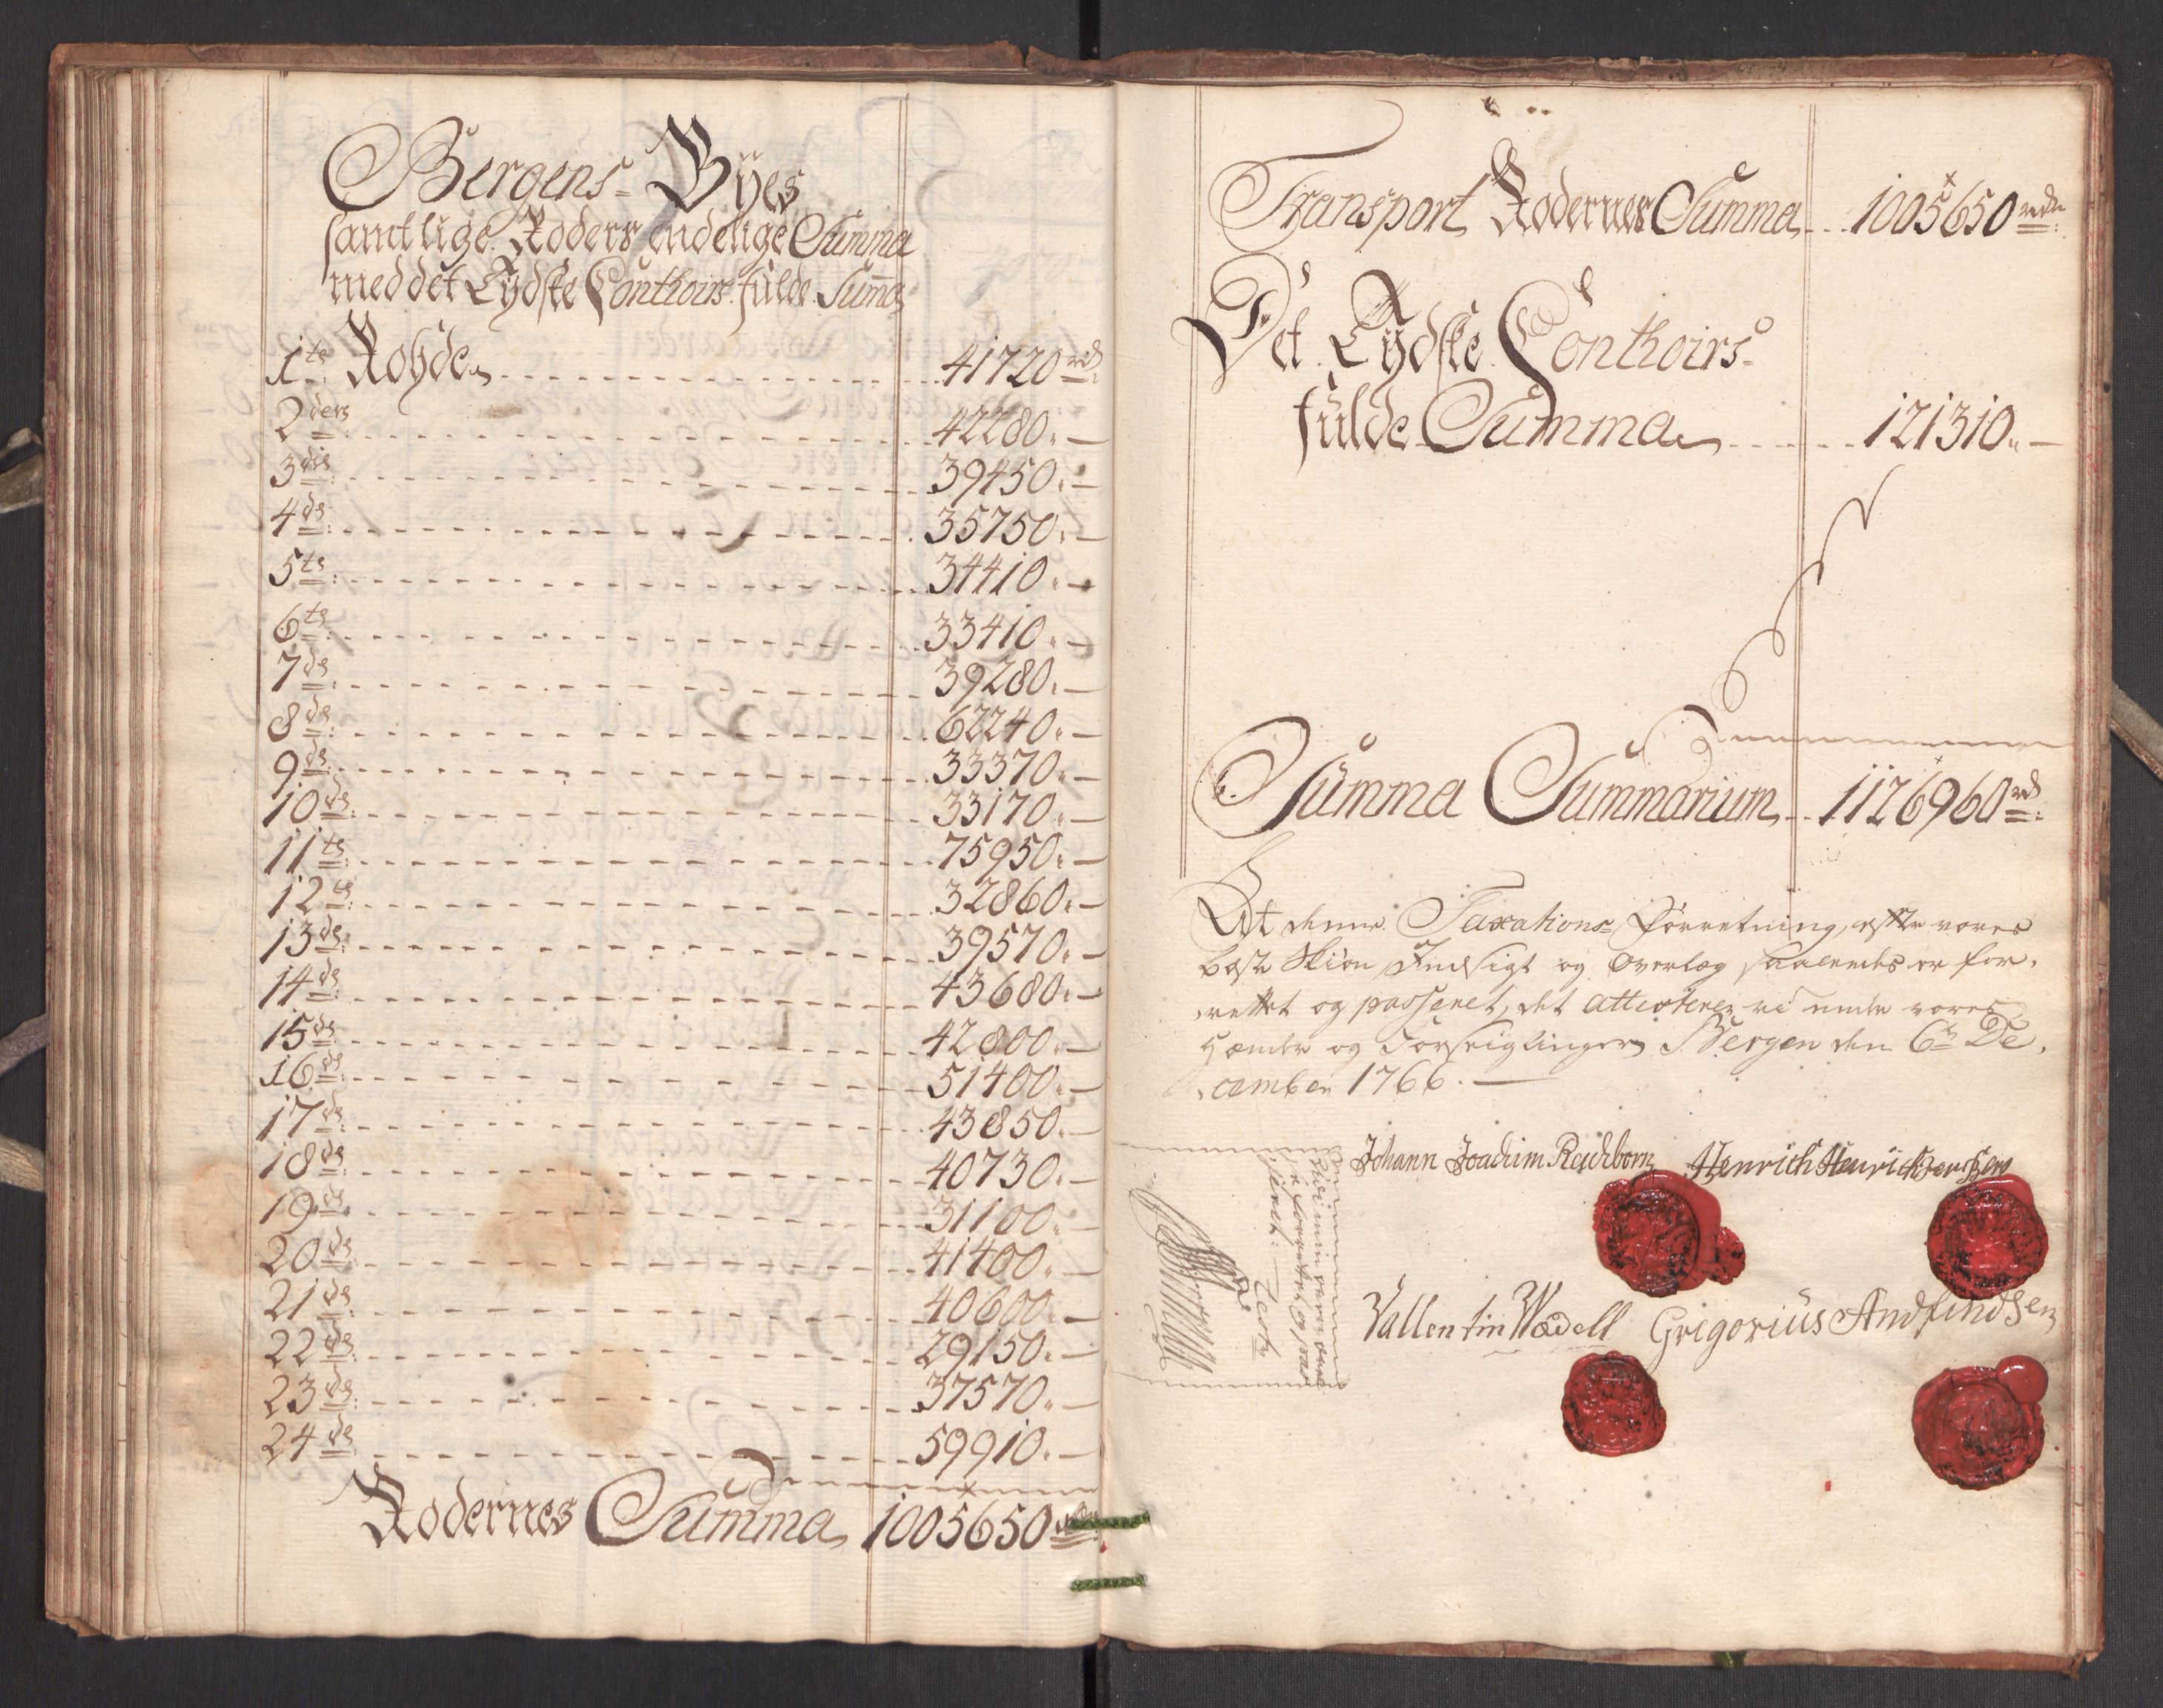 Bergens Byes
samtlige Roders endelige Summa
med det Tydske Conthoirs fulde Summa
1te Rohde 41720 rd
2ders 42280
3dis 39450
4de 35750
5te 34410
6te 33410
7de 39280
8de 62240
9de 33370
10de 33170
11te 75950
12te 32860
13de 39570
14de 43680
15de 42800
16de 51400
17de 43850
18de 40730
19de 31100
20de 41400
21de 40600
22de 29150
23de 37570
24de 59910
Rodernes Summa 1005650
Transport Rodernes Summa 1005650 rdr
Det Tydske Conthoirs
fulde Summa 121310
Summa Summarium 1126960 rd
At denne Taxations Forretning, efter vores
beste Skiøn Indsigt og Overlæg saaledes er for-
rettet og passeret, det attesterer vi under vores
Hænder og Forseiglinger Bergen den 6te De-
cember 1766.
Johann Joachim Reichborn Henrich Henrichsen
Vallentin Wedell Grigorius Andfindsen